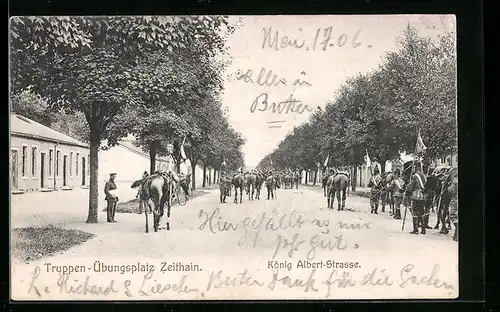 Mai, 17.06.
Alles in
Butter
Hier gefällts uns
gut.
Truppen-Übungsplatz Zeithain.
König Albert-Strasse.
L. Richard & Lieschen, Besten Dank für die Sachen